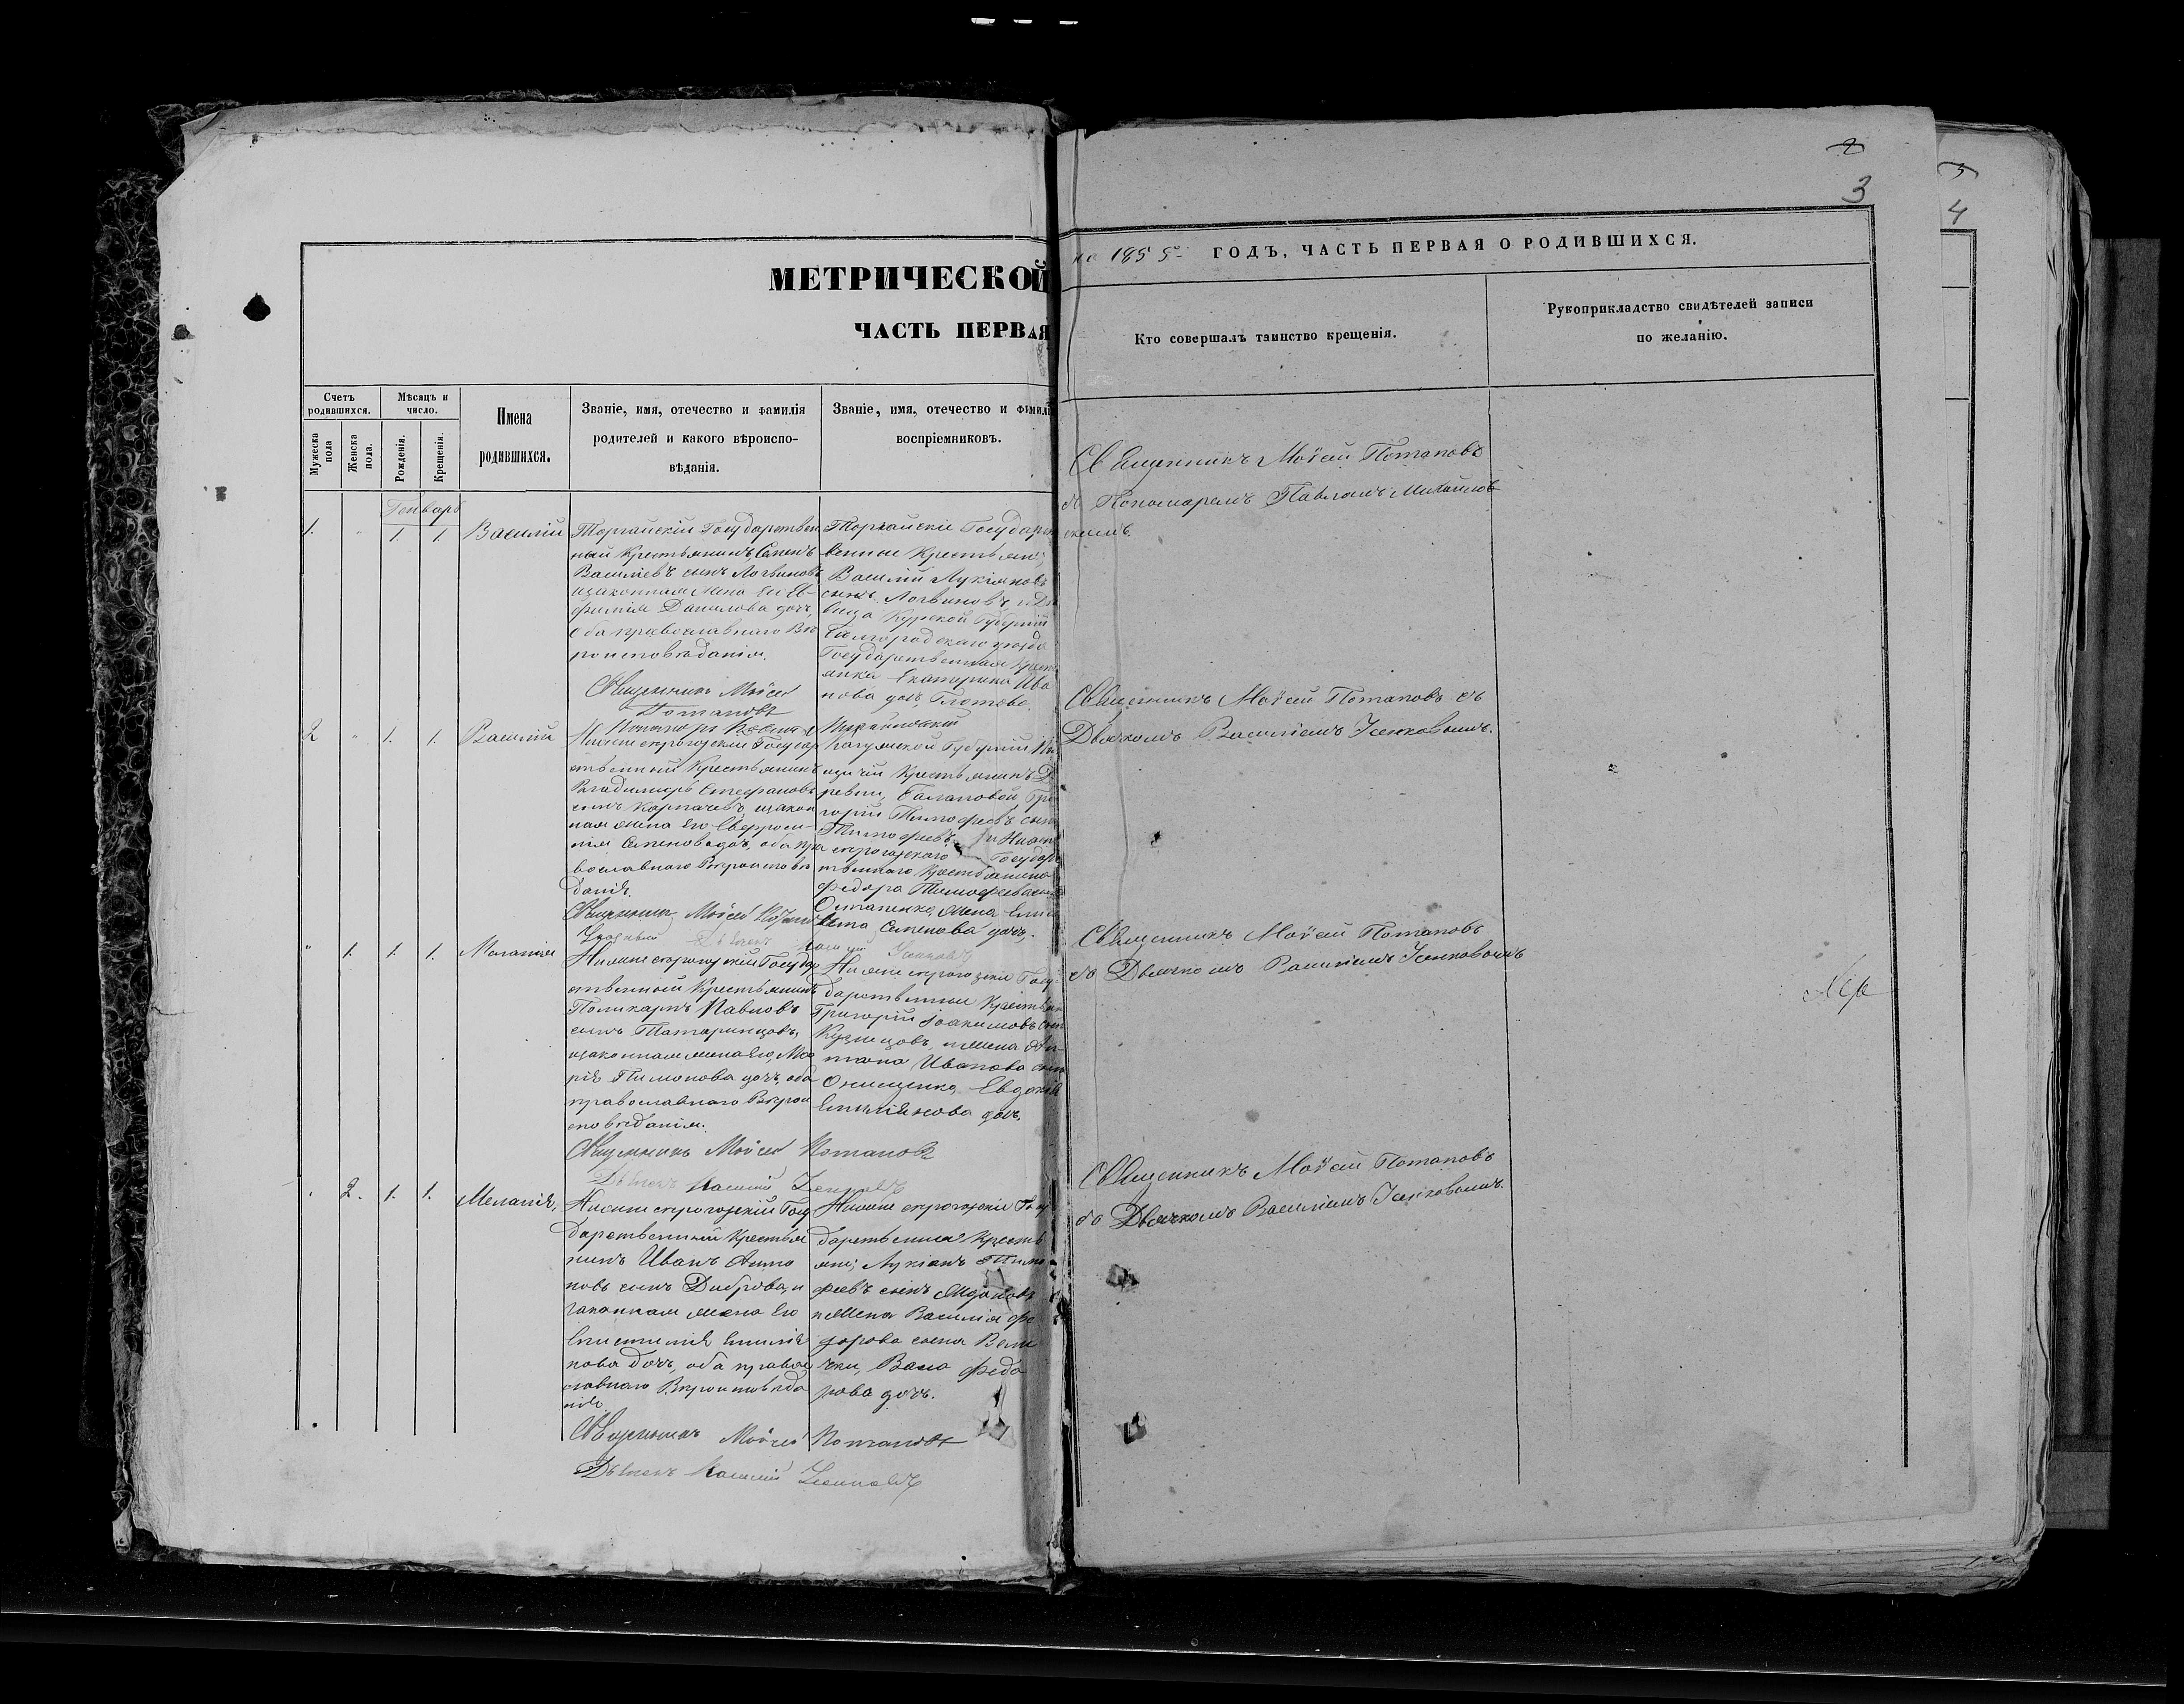 2
3
5
4
МЕТРИЧЕСКОЙ
ЧАСТЬ ПЕРВАЯ
на 1855 ГОДЪ, ЧАСТЬ ПЕРВАЯ О РОДИВШИХСЯ.
Счетъ родившихся.
Мужеска пола
Женска пола.
Мѣсяцъ и число.
Рожденія.
Крещенія.
Имена родившихся.
Званіе, имя, отечество и фамилія
родителей и какого вѣроиспо-
вѣданія.
Званіе, имя, отечество и фамилі
воспріемниковъ.
Кто совершалъ таинство крещенія.
Рукоприкладство свидѣтелей записи
по желанію.
Генварь
1. " 1. 1. Василій
Торгайскій Государствен
ный Крестьянинъ, Семенъ
Василіевъ сынъ Логвиновъ
изаконная Жена Его Ев-
фимія Данилова дочь,
Оба православнаго Вѣ
роисповѣданія.
Священникъ Моѵсей
Потаповъ
Торгайскіе Государс
венные Крестьяне,
Василій Лукіяновъ
сынъ Логвиновъ и
вица Курской Губерніи
Белгородскаго уезда
Государственная Крест
янка Екатерина Ива
нова дочь Глотова
Священникъ Моѵсей Потаповъ
съ Пономаремъ Павломъ Михайлов
скимъ.
2 " 1. 1. Василій
Нижнесерогозскій Государ
ственный Крестьянинъ
Владимиръ Стефановъ
сынъ Карпачевъ, изакон
ная жена Его Евфроси-
нія Семенова дочь, оба пра
вославнаго Вѣроисповѣ
данія.
Священникъ Моѵсей
Калужской Губерніи
Крестьянинъ Де
ревни, Гри
горій Тимофеевъ сынъ
Тимофеевъ, и Нижне
серогозскаго Государ
твеннаго Крестьянина
Федора Тимофеева сына
Остапенко, жена Елиса
вета Семенова дочь.
Священникъ Моѵсей Потаповъ съ
Дьячкомъ Василіемъ Усенковымъ.
" 1. 1. 1. Меланія
Нижнесерогозскій Государ
ственный Крестьянинъ
Поликарпъ Павловъ
сынъ Татаринцовъ,
изаконная жена Его, Ма
рія Тимонова дочь, оба
православнаго Вѣрои
сповѣданія.
Священникъ Моѵсей Потаповъ
Дьячекъ Василій
Нижнесерогозскіе Госу
дарственные Крестьяне
Григорій Іоакимовъ сынъ
Кузнецовъ, и жена
Иванова сына
Онищенко, Евдокія
Емиліянова дочь.
Священникъ Моѵсей Потаповъ
съ Дьячкомъ Василіемъ Усенковымъ
" 2. 1. 1. Меланія,
Нижнесерогозскій Госу
дарственный Крестья
нинъ Иванъ Анто
новъ сынъ Диброва, и
законная жена Его
Епистимія Емилія
нова дочь, оба правос
лавнаго Вѣроисповѣда
нія.
Священникъ Моѵсей Потаповъ
Дьячекъ Василій
Нижнесерогозскіе Госу
дарственные Кресть
яне; Лукіанъ Тимо
феевъ сынъ
и жена Василія Фе
дорова сына Вели
чки, Васа Федо
рова дочь.
Священникъ Моѵсей Потаповъ
съ Дьячкомъ Василіемъ Усенковымъ.